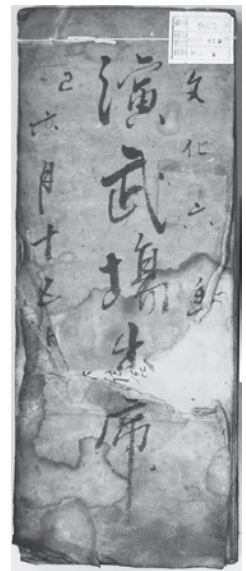 文化六
演武場出席
巳六月十五日